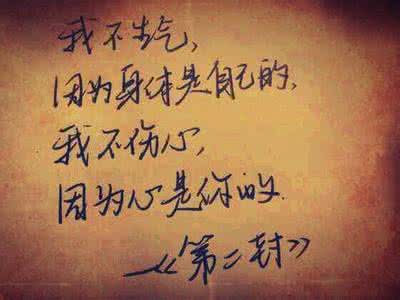 我不生气,
因为身体是自己的,
我不伤心,
因为心是你的.
——《第二封》